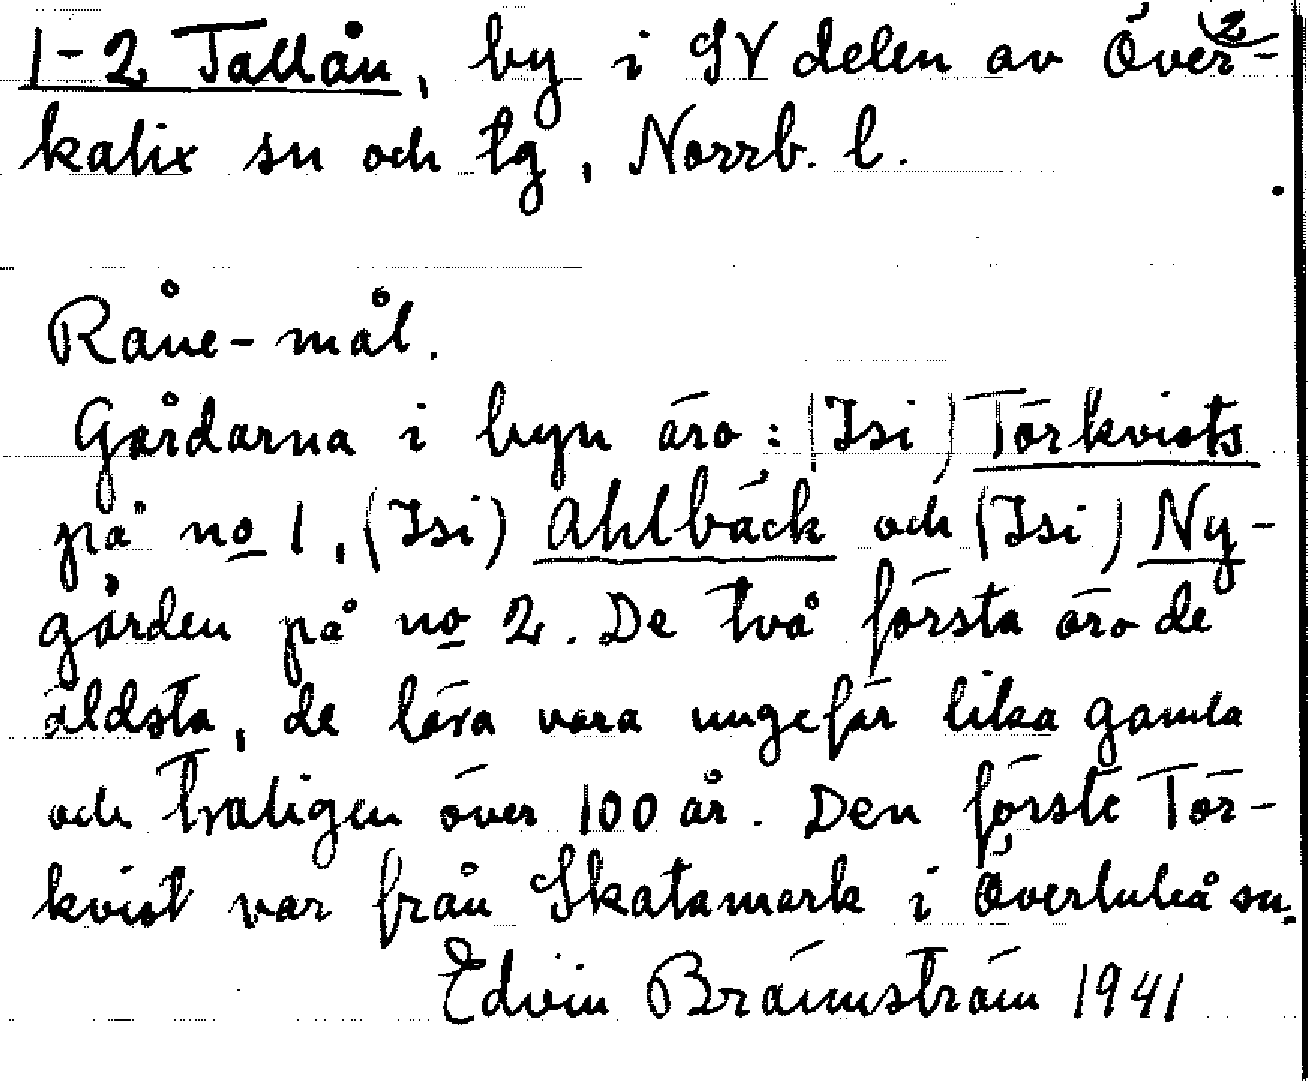 1-2 Tallån, by i SV delen av Över-
kalix sn och tg, Norrb. l.
Råne-mål.
Gårdarna i byn äro: (Isi) Törkvists
på no 1, (Isi) Ahlbäck och (Isi) Ny-
gården på no 2. De två första äro de
äldsta, de lära vara ungefär lika gamla
och troligen över 100 år. Den förste Tör-
kvist var från Skatamark i Överluleå sn.
Edvin Brännström 1941